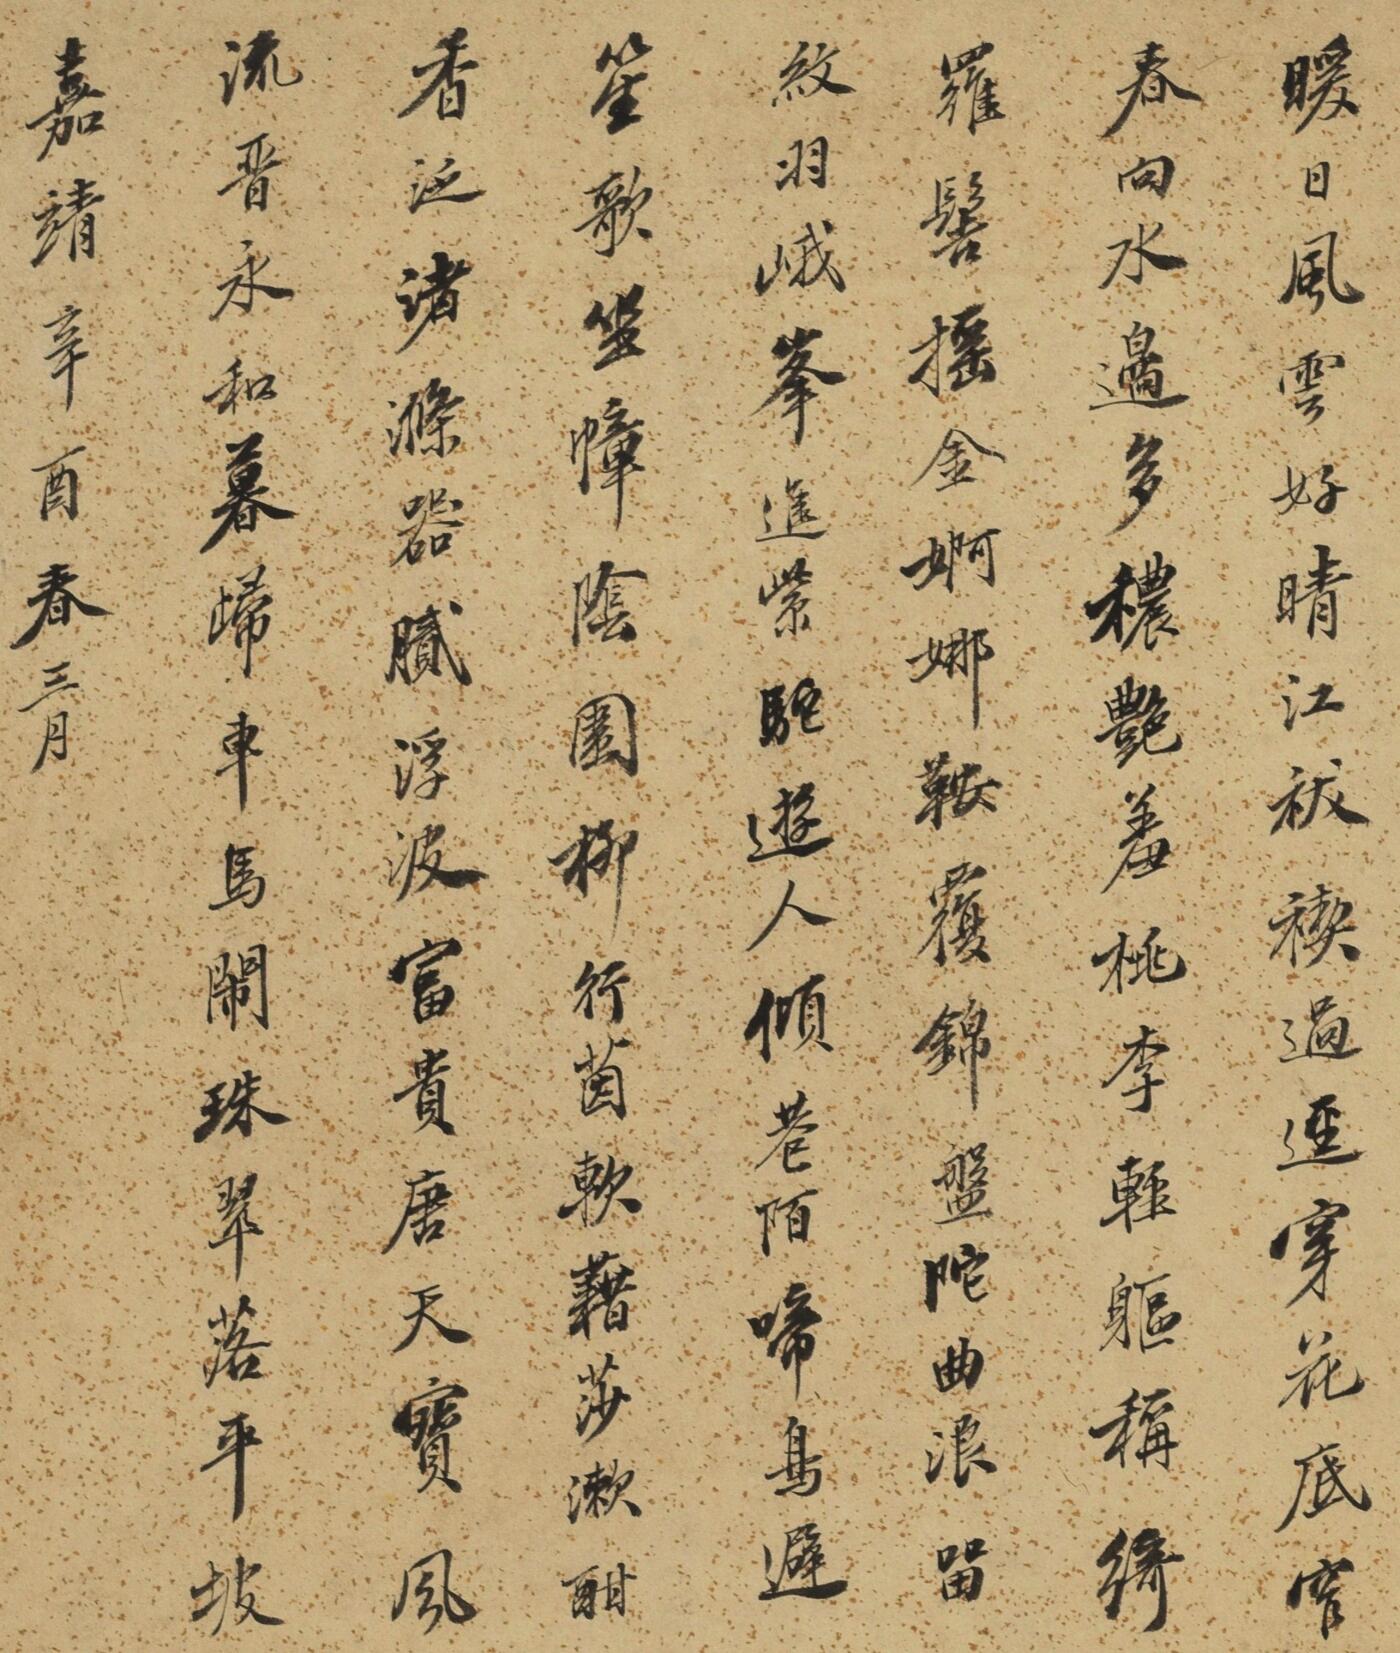 暖日風雲好晴江祓禊過逕穿花底窄
春向水邊多穠艷羞桃李輕軀稱綺
羅鬟搖金婀娜鞍覆錦盤陀曲浪留
紋羽峨峯進紫駝遊人傾巷陌啼鳥避
笙歌坐幛陰圍柳行茵軟藉莎漱酣
香泛渚滌器膩浮波富貴唐天寶風
流晉永和暮歸車馬鬧珠翠落平坡
嘉靖辛酉春三月